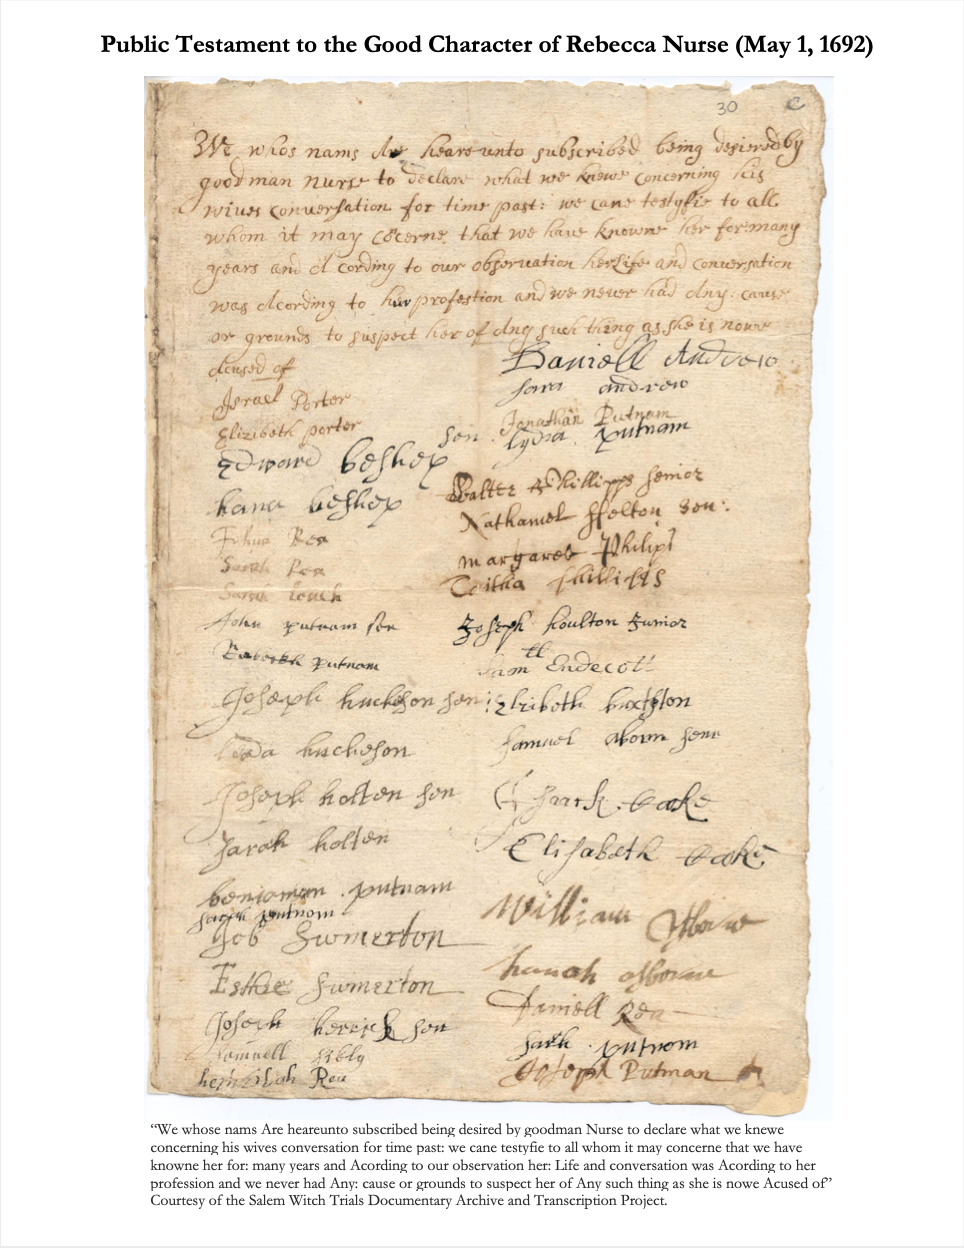 Public Testament to the Good Character of Rebecca Nurse (May 1, 1692)
30 C
We whos nams Are heareunto subscribed being desiered by
goodman nurse to declare what we knewe concerning his
wives conversation for time past: we cane testyfie to all
whom it may cocerne that we have knowne her for many
years and Acording to our observation her Life and conversation
was Acording to her profestion and we never had Any: cause
or grounds to suspect her of Any such thing as she is nowe
Acused of
Daniell Andrew
sara andrew
Israel Porter
Jonathan Putnam
Elizibeth porter
sen lydia putnam
Edward beshep
Walter Phillipps senior
hana beshep
Nathaniel ffelton sen:
Rea
margaret Philips
Sarah Rea
phillips
Sarah
John putnam sen
Joseph houlton Junior
Rebeckh putnam
Sam ll Endecott
Joseph huchison sen:
Elzibeth buxtston
Samuel aborn senr
huchison
Joseph holten sen
Isaack Cooke
Sarah holten
Elisabeth Cooke
beniaman putnam
sarah putnam
William Osborne
Job Swinerton
hanah osborne
Esther Swinerton
Daniell Rea
Joseph herrick sen
sarah putnam
Samuell sibly
Joseph Putman
Rea
“We whose nams Are heareunto subscribed being desired by goodman Nurse to declare what we knewe
concerning his wives conversation for time past: we cane testyfie to all whom it may concerne that we have
knowne her for: many years and Acording to our observation her: Life and conversation was Acording to her
profession and we never had Any: cause or grounds to suspect her of Any such thing as she is nowe Acused of”
Courtesy of the Salem Witch Trials Documentary Archive and Transcription Project.